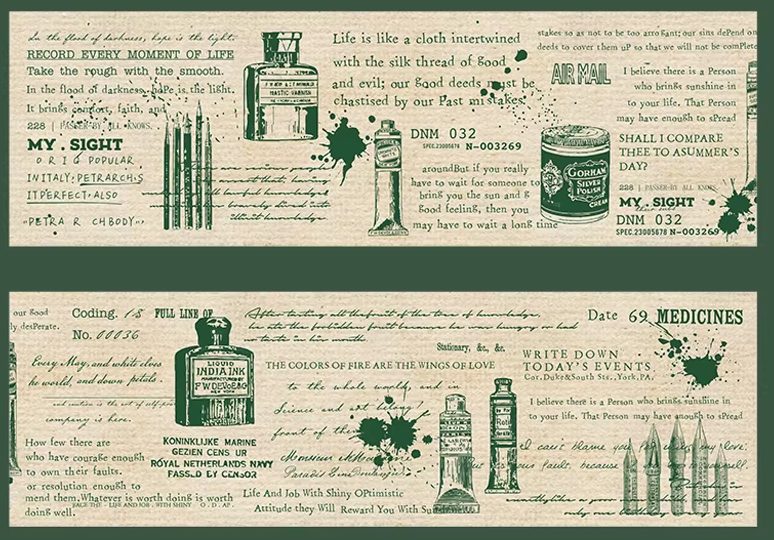 In the flood of darkness, hope is the light.
RECORD EVERY MOMENT OF LIFE
Take the rough with the smooth.
In the flood of darkness, hope is the light.
It brings comfort, faith, and
228 | PASSER-BY ALL KNOWS.
MY.SIGHT
ORIG POPULAR
IN ITALY; PETRARCH.S
IT PERFECT.ALSO
"PETRA R CH BODY"
MASTIC VARNISH
Life is like a cloth intertwined
with the silk thread of good
and evil; our good deeds must be
chastised by our Past mistakes.
DNM 032
SPEC.23005678 N-003269
aroundBut if you really
have to wait for someone to
bring you the sun and g
good feeling, then you
may have to wait a long time
stakes so as not to be too arrogant; our sins depend on
deeds to cover them uP so that we will not be comPlete
AIR MAIL
I believe there is a Person
who brings sunshine in
to your life. That Person
may have enough to sPread
GORHAM
SILVER
POLISH
CREAM
SHALL I COMPARE
THEE TO ASUMMER'S
DAY?
228 | PASSER-BY ALL KNOWS.
MY.SIGHT
DNM 032
SPEC.23005678 N-003269
our good
ly desPerate.
Coding. 1-8 FULL LINE OF
No. 00036
Every May, and white cloves
he world, and down petals.
company is here.
How few there are
who have courage enough
to own their faults.
or resolution enough to
mend them.Whatever is worth doing is worth
doing well.
FACE THE - LIFE AND JOB . WITH SHINY O . D . AP .
LIQUID
INDIA INK
MANUFACTURED BY
F.W.DEVOE&CO
NEW YORK
KONINKLIJKE MARINE
GEZIEN CENS UR
ROYAL NETHERLANDS NAVY
PASSED BY CENSOR
After tasting all the fruit of the tree of knowledge,
he ate the forbidden fruit because he was hungry or had
no taste in his mouth.
Stationary, &c., &c.
THE COLORS OF FIRE ARE THE WINGS OF LOVE
to the whole world, and in
Science and art belong
front of the
Monsieur
Paradis
Life And Job With Shiny OPtimistic
Attitude they will Reward You With
Date 69 MEDICINES
WRITE DOWN
TODAY'S EVENTS
Cor.Duke&South Sts.,York,PA,
I believe there is a Person who brings sunshine in
to your life. That Person may have enough to sPread
I can't blame you my love.
fault, because yourself.